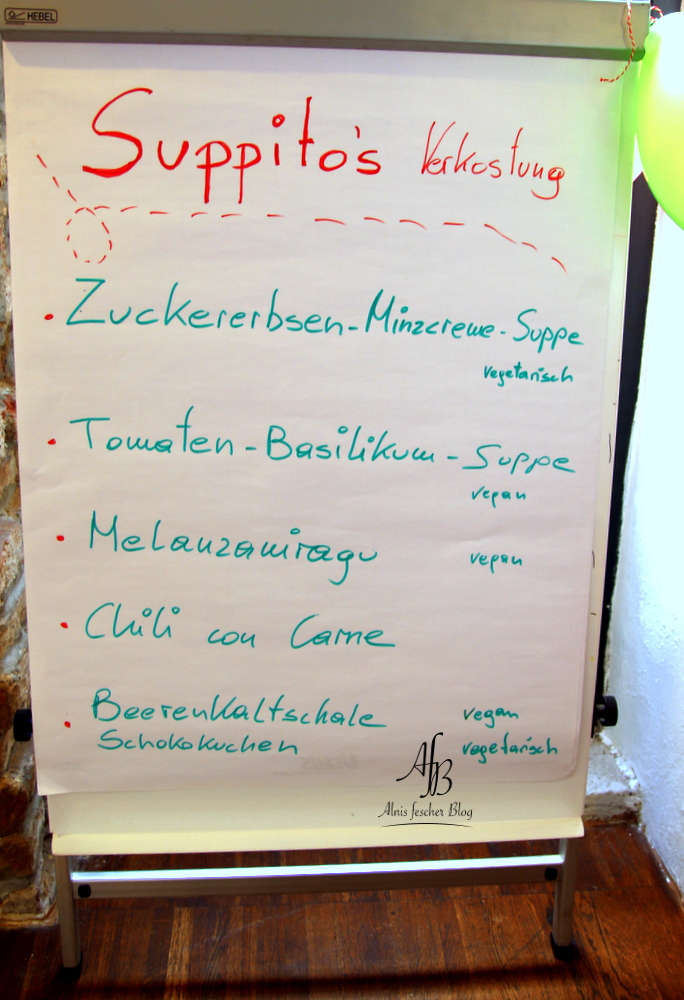 HEBEL
Suppito's Verkostung
• Zuckererbsen-Minzcreme-Suppe
vegetarisch
• Tomaten-Basilikum-Suppe
vegan
• Melanzaniragu vegan
• Chili con Carne
• Beerenkaltschale vegan
Schokokuchen vegetarisch
AfB
Alnis fescher Blog